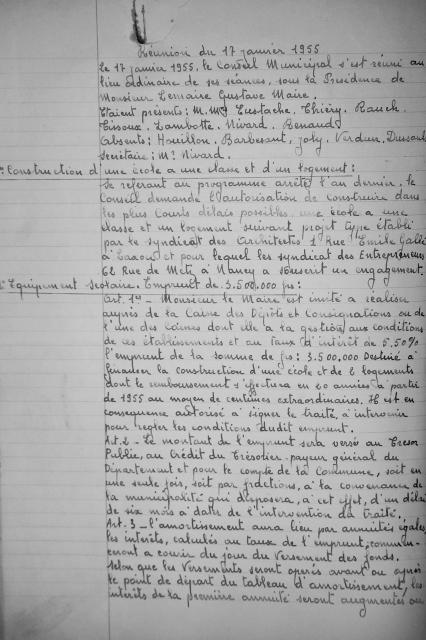 Réunion du 17 janvier 1955
Le 17 janvier 1955, le Conseil Municipal s'est réuni au
lieu ordinaire de ses séances, sous la Présidence de
Monsieur Lemaire Gustave Maire.
Etaient présents : M.M. Eustache, Thiéry, Rauch
Cusoux, Lambotte, Nivard, Renaud
Absents : Houillon, Barbesant, Joly, Verdun, Dussoul
Secrétaire : Mr Nivard.
Construction d'une école a une classe et d'un logement :
Se referant au programme arrêté l'an dernier, le
Conseil demande l'autorisation de construire dans
les plus courts délais possibles, une école a une
classe et un logement suivant projet type établi
par le syndicat des Architectes 1 Rue Emile Gallé
à et pour lequel les syndicat des Entrepreneurs
62 Rue de Metz à Nancy a souscrit un engagement.
Equipement scolaire. Emprunt de 3.500.000 frs :
Art. 1er - Monsieur le Maire est invité a réaliser
auprès de la Caisse des Dépôts et Consignations ou de
l'une des Caisses dont elle a la gestion, aux conditions
de ces établissements et au taux d'intérêt de 5,50%
l'emprunt de la somme de frs : 3.500.000 destiné à
financer la construction d'une école et de 2 logements
dont le remboursement s'effectuera en 20 années à partir
de 1955 au moyen de centimes extraordinaires. Il est en
conséquence autorisé a signer le traité, a intervenir
pour regler les conditions dudit emprunt.
Art. 2 - Le montant de l'emprunt sera versé au Tresor
Public, au Crédit du Trésorier-payeur général du
Département et pour le compte de la Commune, soit en
une seule fois, soit par fractions, a la convenance de
la municipalité qui disposera, a cet effet, d'un délai
de six mois à dater de l'intervention du traité.
Art. 3 - l'amortissement aura lieu par annuités égales,
les intérêts, calculés au taux de l'emprunt, commen-
ceront a courir du jour du versement des fonds.
Selon que les versements seront opérés avant ou après
le point de départ du tableau d'amortissement, les
intérêts de la première annuité seront augmentés ou